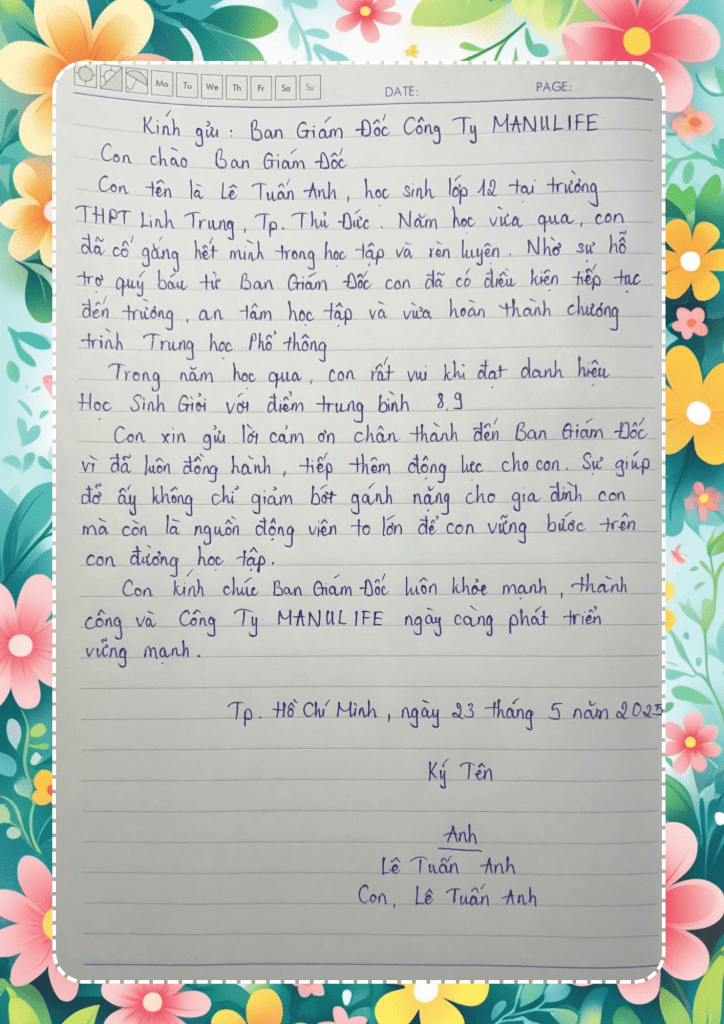 Mo Tu We Th Fr Sa Su DATE: PAGE:
Kính gửi : Ban Giám Đốc Công Ty MANULIFE
Con chào Ban Giám Đốc
Con tên là Lê Tuấn Anh, học sinh lớp 12 tại trường
THPT Linh Trung, Tp. Thủ Đức. Năm học vừa qua, con
đã cố gắng hết mình trong học tập và rèn luyện. Nhờ sự hỗ
trợ quý báu từ Ban Giám Đốc con đã có điều kiện tiếp tục
đến trường, an tâm học tập và vừa hoàn thành chương
trình Trung học Phổ thông
Trong năm học qua, con rất vui khi đạt danh hiệu
Học Sinh Giỏi với điểm trung bình 8.9
Con xin gửi lời cảm ơn chân thành đến Ban Giám Đốc
vì đã luôn đồng hành, tiếp thêm động lực cho con. Sự giúp
đỡ ấy không chỉ giảm bớt gánh nặng cho gia đình con
mà còn là nguồn động viên to lớn để con vững bước trên
con đường học tập.
Con kính chúc Ban Giám Đốc luôn khỏe mạnh, thành
công và Công Ty MANULIFE ngày càng phát triển
vững mạnh.
Tp. Hồ Chí Minh, ngày 23 tháng 5 năm 2025
Ký Tên
Anh
Lê Tuấn Anh
Con, Lê Tuấn Anh